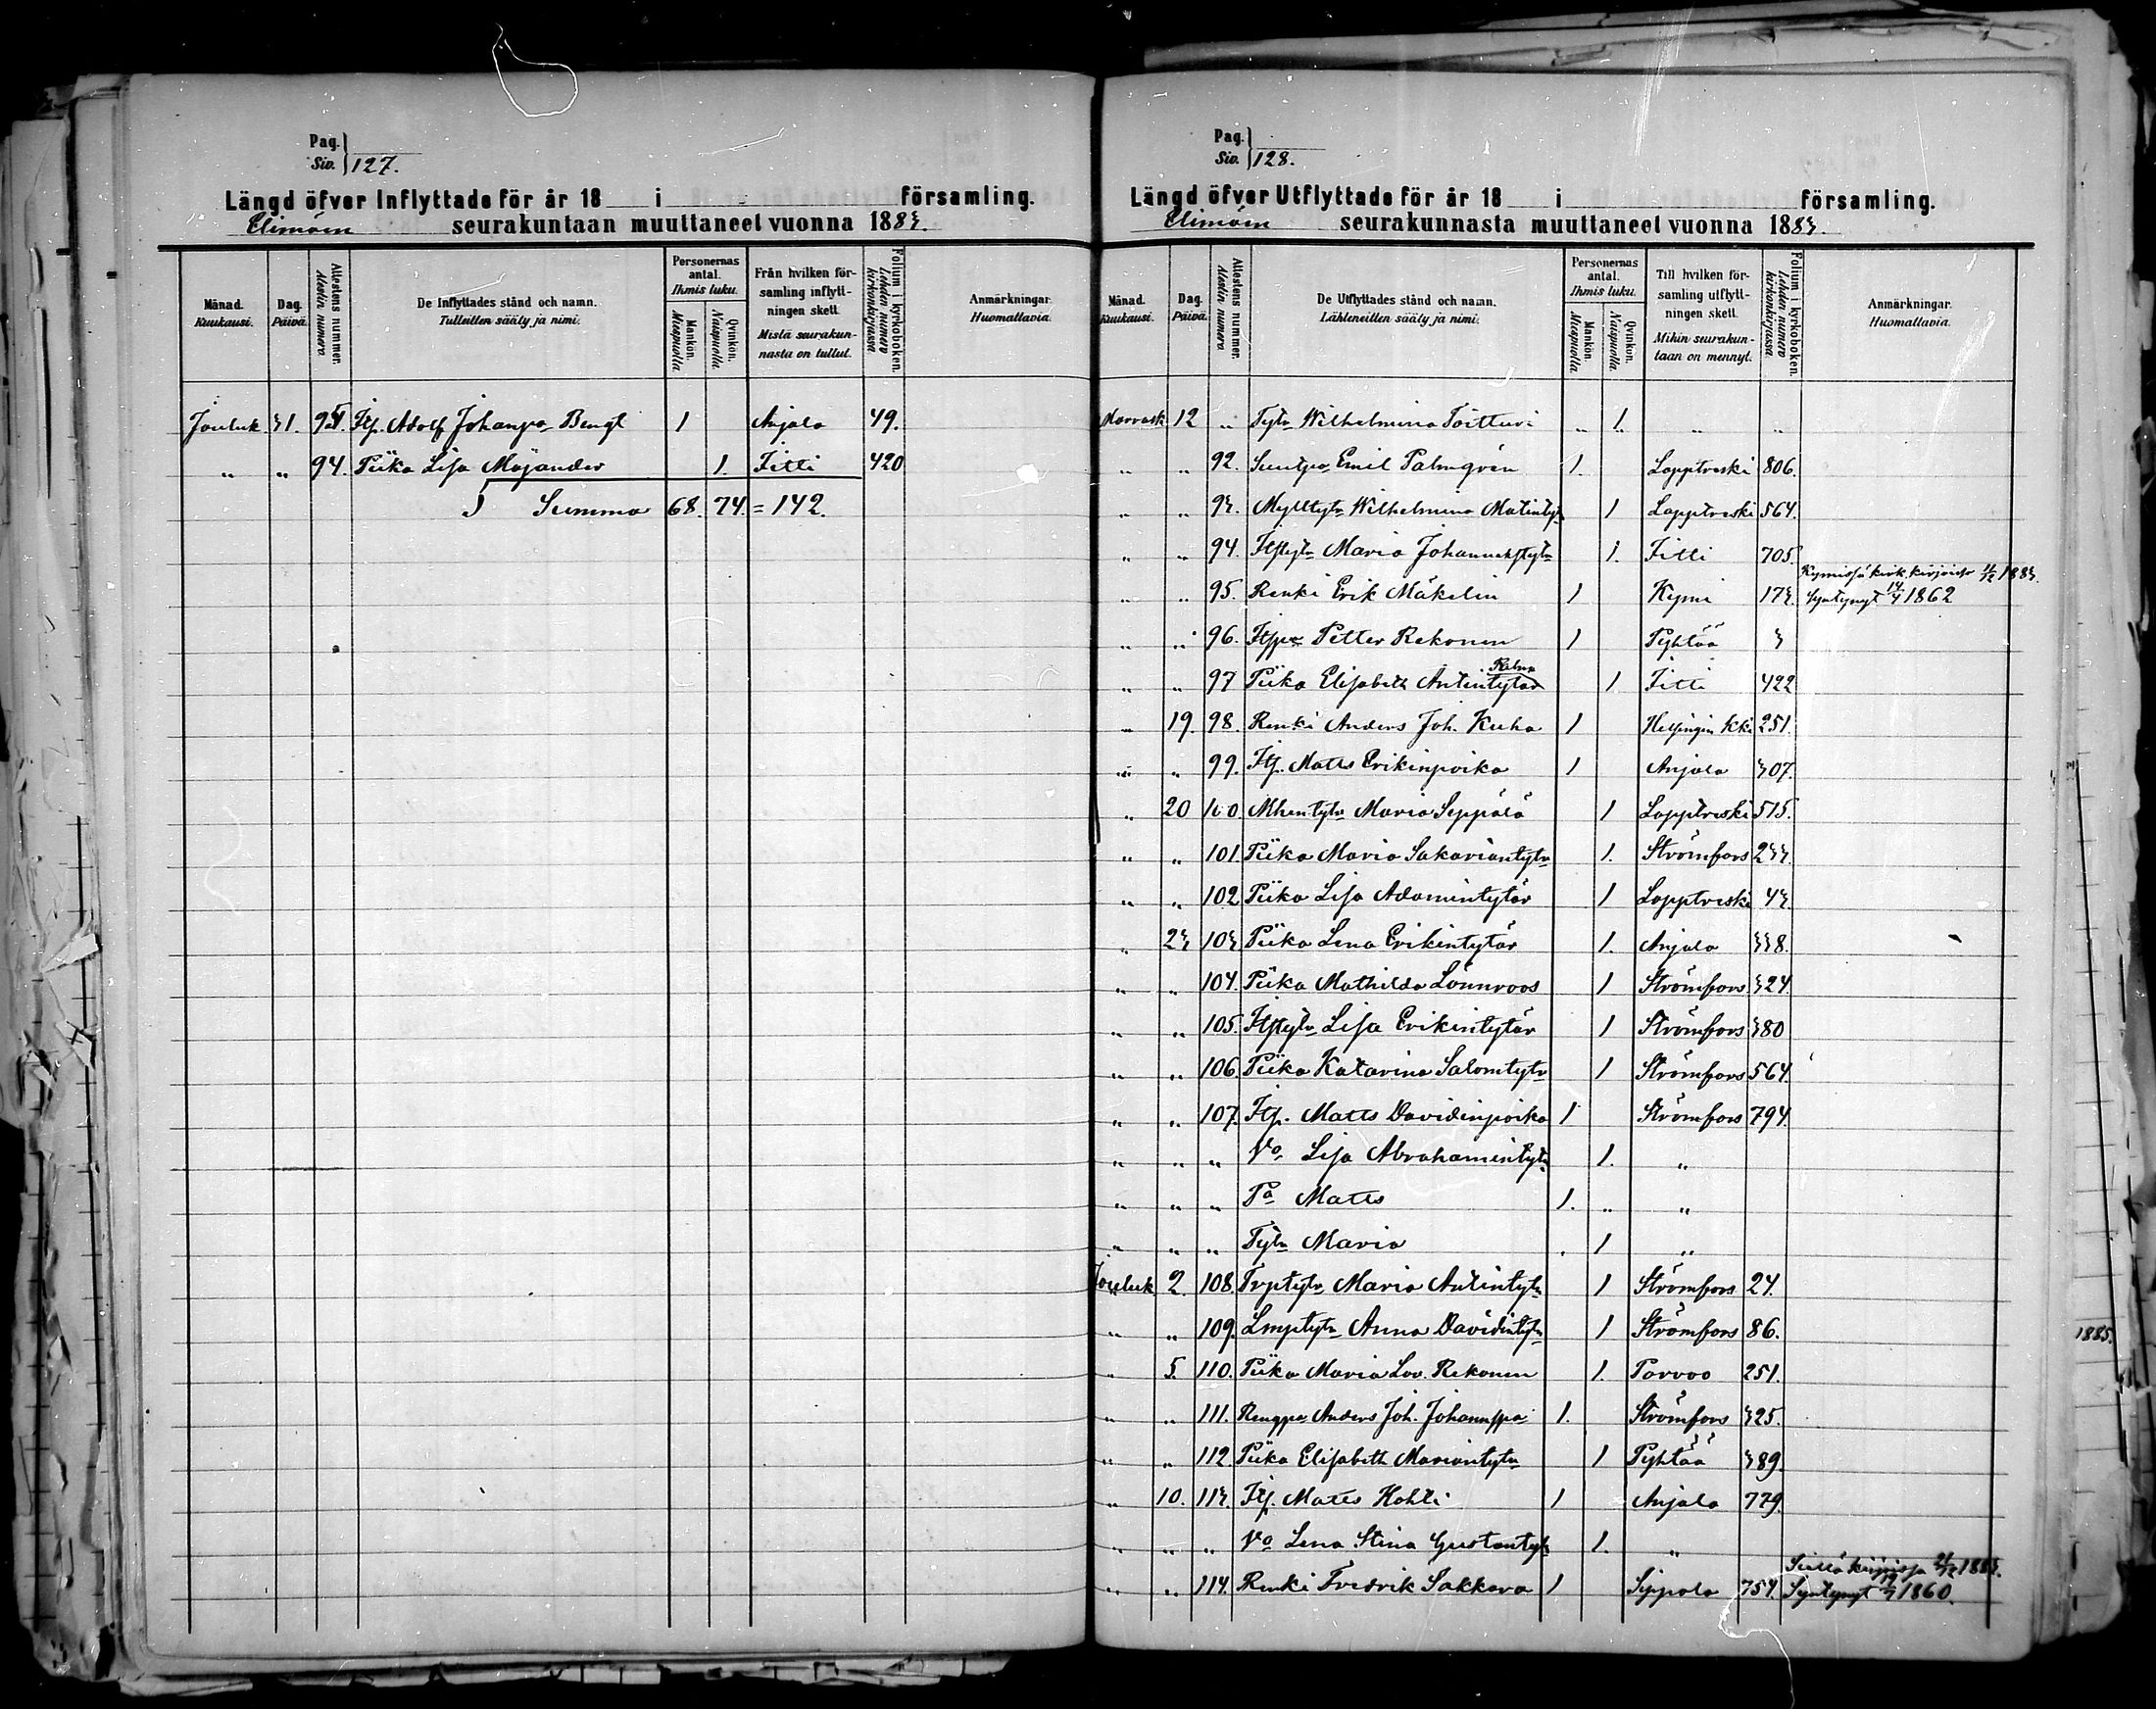 Pag.
Siv. 127.
Längd öfver Inflyttade för år 18 i församling.
Elimäen seurakuntaan muuttaneet vuonna 1883.
Månad. Kuukausi.
Dag. Päivä.
Attestens nummer. Nestin numero.
De Inflyttades stånd och namn. Tulleitten sääty ja nimi.
Personernas antal. Ihmis luku.
Mankön. Miespuolia.
Qvinkön. Naispuolia.
Från hvilken församling inflyttningen skett. Mistä seurakunnasta on tullut.
Folium i kyrkoboken. Lehden numero kirkonkirjassa
Anmärkningar. Huomattavia.
Jouluk. 31. Itp. Adolf Johanpa Bengt 1 Anjala 49.
" " 94. Piika Lisa Mojander 1. Iitti 420
Summa 68. 74. = 142.
Pag.
Siv. 128.
Längd öfver Utflyttade för år 18 i församling.
Elimäen seurakunnasta muuttaneet vuonna 1883.
Månad. Kuukausi.
Dag. Päivä.
Attestens nummer. Nestin numero.
De Utflyttades stånd och namn. Lähteneitten sääty ja nimi.
Personernas antal. Ihmis luku.
Mankön. Miespuolia.
Qvinkön. Naispuolia.
Till hvilken församling utflyttningen skett. Mihin seurakuntaan on mennyt.
Folium i kyrkoboken. Lehden numero kirkonkirjassa.
Anmärkningar. Huomattavia.
Marrask 12 " Tytr Wilhelmina Toitturi " 1. " "
" " 92. Emil Palmqvén 1. Lapptreski 806.
" " 93. Wilhelmina Matintyt 1 Lapptreski 564.
" " 94. Maria Johannestytr 1. Iitti 705.
" " 95. Renki Erik Mäkelin 1 Kymi 173. Kymissä kirk. kirjoist 11/12 1883. Syntynyt 14/4 1862
" " 96. Petter Rekonen 1 Pyhtää 3
" " 97 Piika Elisabeth Antintytär 1 Iitti 422
" 19. 98. Renki Anders Joh. Kuha 1 Helsingin kki 251.
" " 99. Itp. Matts Erikinpoika 1 Anjala 307.
" 20 100. Maria Seppälä 1 Lapptreski 515.
" " 101. Piika Maria Sakariantytr 1. Strömfors 233.
" " 102 Piika Lisa Adamintytär 1 Lapptreski 43.
" 23 103 Piika Lena Erikintytär 1. Anjala 338.
" " 104. Piika Mathilda Lönnroos 1 Strömfors 324.
" " 105. Itptytr Lisa Erikintytär 1 Strömfors 380
" " 106. Piika Katarina Salomtytr 1 Strömfors 564.
" " 107. Itp. Matts Davidinpoika 1 Strömfors 794.
" " " Vo Lisa Abrahamintytr 1. "
" " " Pa Matts 1. " "
" " " Tytr Maria 1 "
Jouluk 2. 108. Maria Antintytr 1 Strömfors 24.
" " 109. Lmptytr Anna Davidintytr 1 Strömfors 86.
" 5. 110. Piika Maria Lov. Rekonen 1. Porvoo 251.
" " 111. Rengpa Anders Joh. Johanpa 1. Strömfors 325.
" " 112 Piika Elisabeth Mariantytr 1 Pyhtää 389.
" 10. 113. Itp. Matts Kohti 1 Anjala 779.
" " " Vo Lena Stina Gustantytr 1. "
" " 114. Renki Fredrik Sakkara 1 Sippola 754. Syntynyt 1860.
1885.